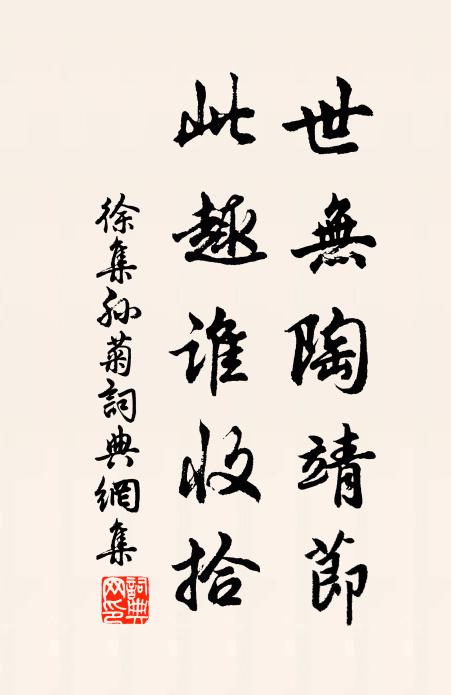 世無陶靖節
此趣誰收拾
徐集孫菊詞典網集
詞典網印